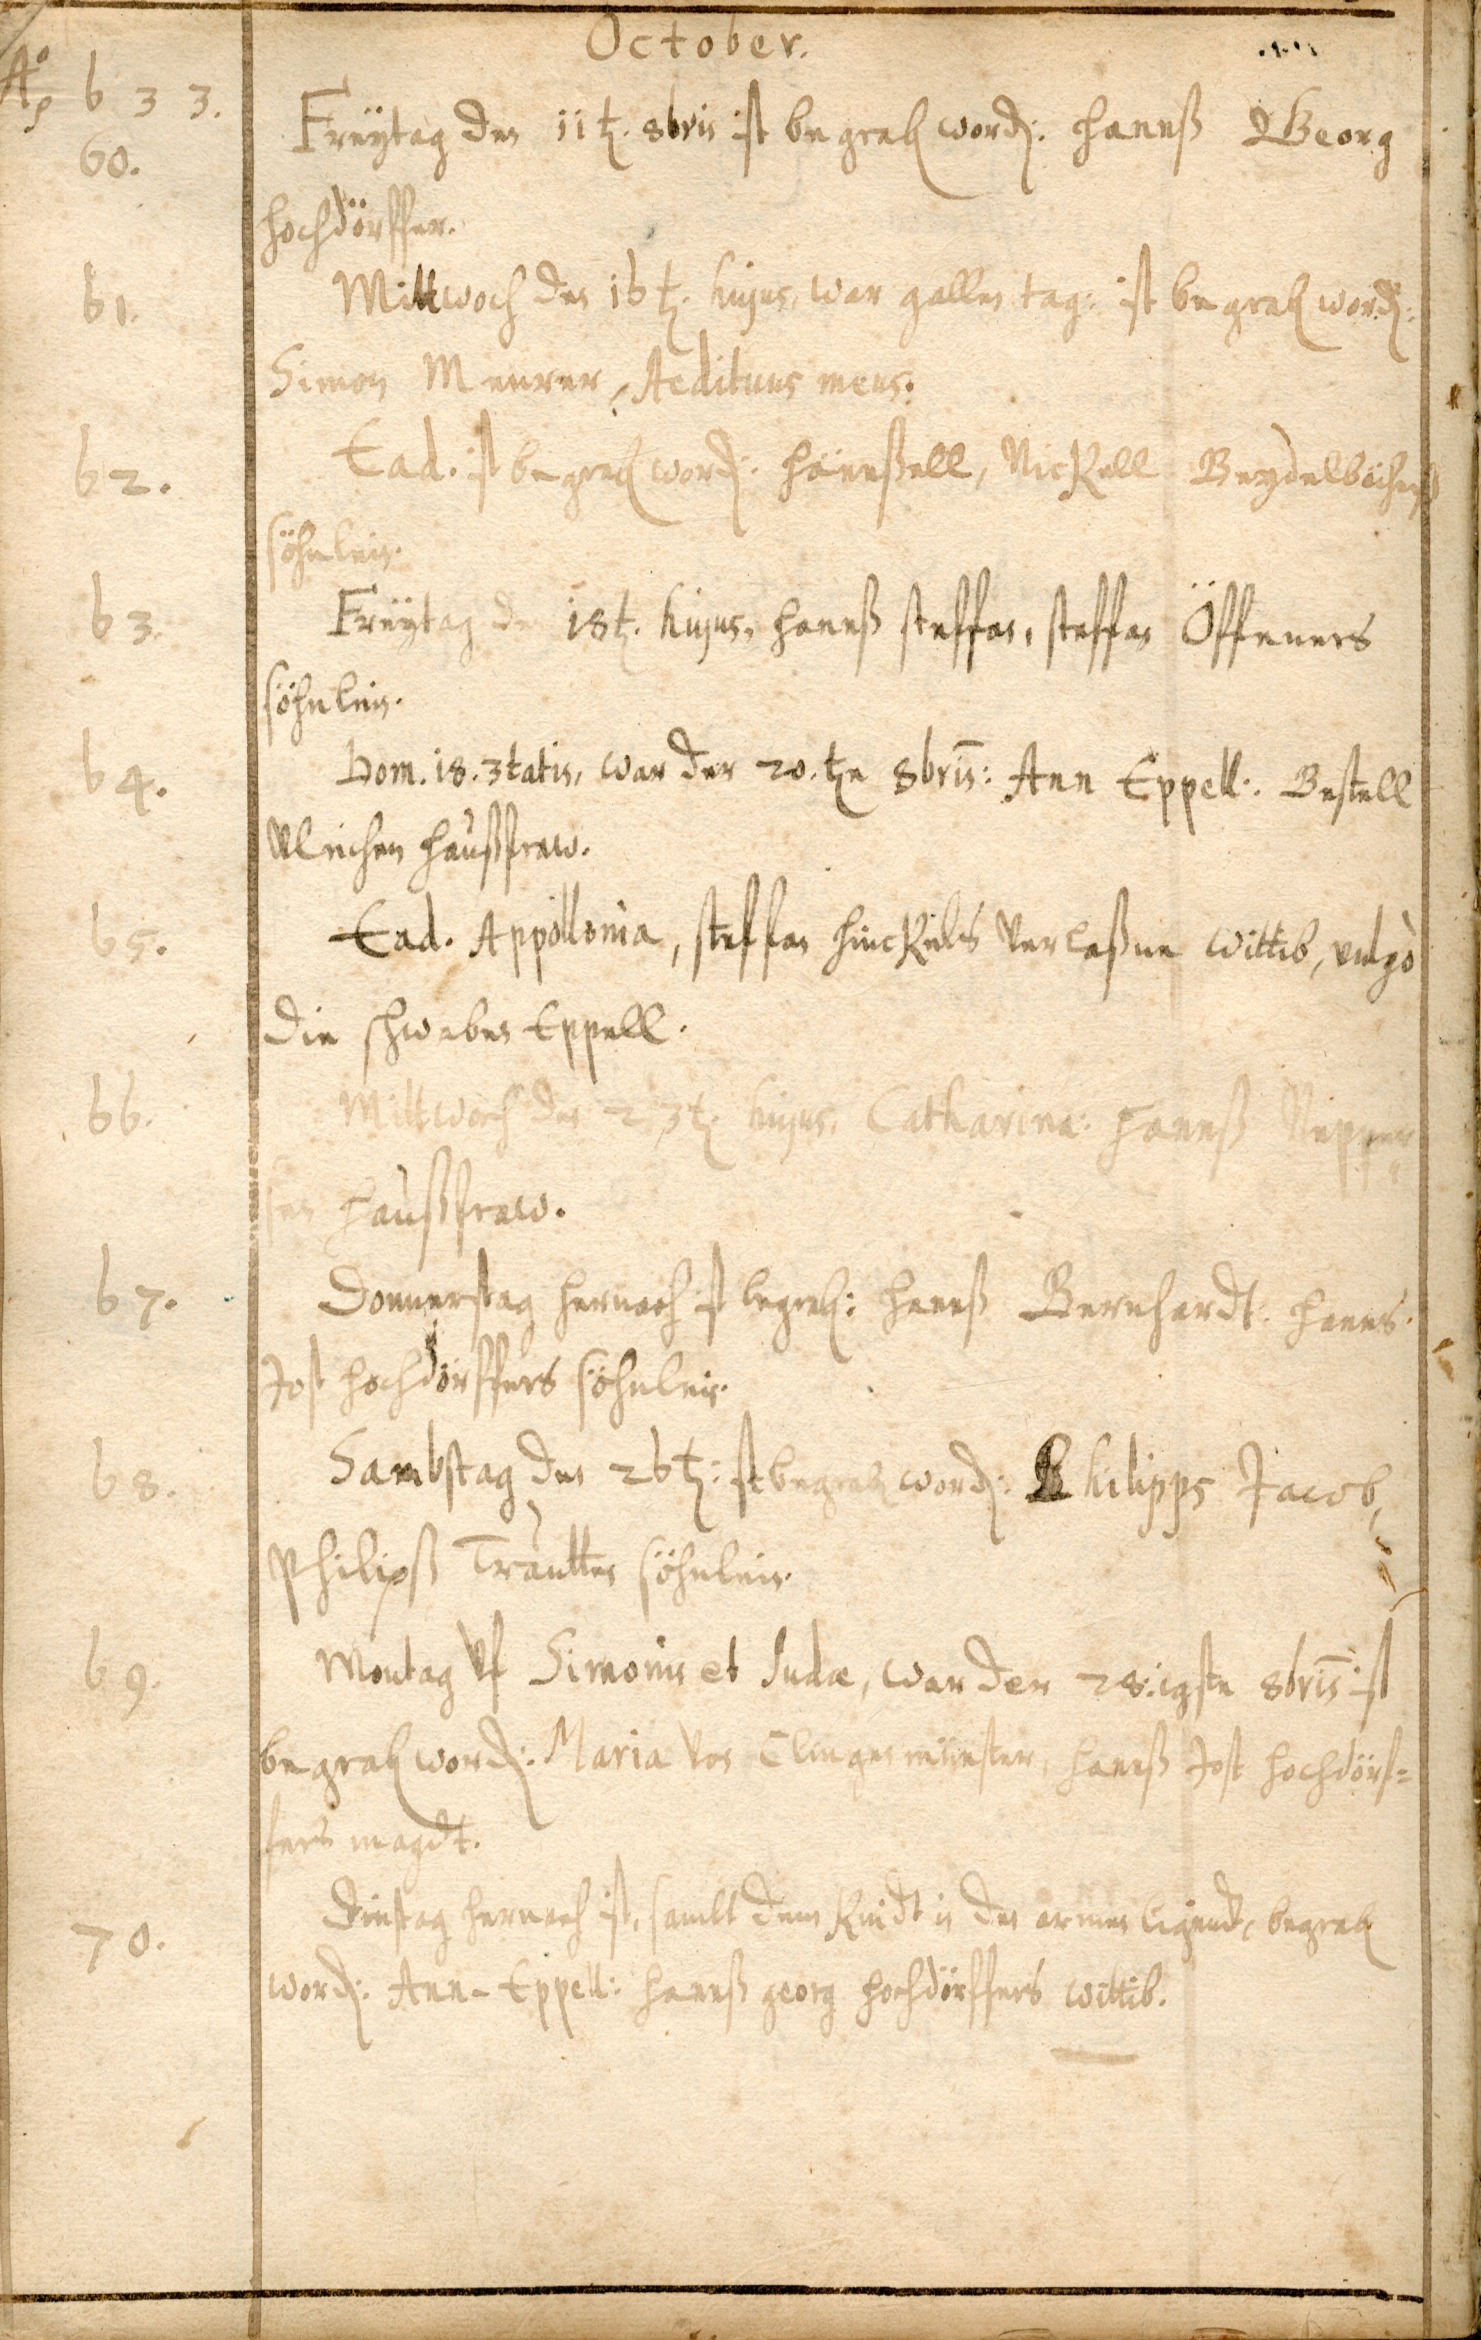 October.
Aº 633.
60. Freÿtag den 11t. 8bris ist begrab. word: Hannß Georg
Hochdörffer.
61. Mittwoch den 16t. hujus, war gallen tag: ist begrab. word:
Simon Meurer, Aedituus meus.
62. Ead. ist begrab. word: Hänßell, Nickell
söhnlein.
63. Freÿtag de 18t. hujus, Hannß steffan, steffan Öffeners
söhnlein.
64. Dom. 18. 3tatis, war der 20.tze 8bris: Ann Eppell: Bestell
Ulrichen haußfraw.
65. Ead. Appollonia, steffan Hinckels verlaßne wittib, vulgò
die schwaben Eppell.
66. Mittwoch den 23t. hujus, Catharina: Hannß
haußfraw.
67. Donnerstag hernach ist begrab: Hannß Bernhardt. Hanns
Jost Hochdörffers söhnlein.
68. Sambstag den 26t: ist begrab word: Philipps Jacob,
Philipß Trautten söhnlein.
69. Montag vf Simonis et Judæ, war der 28.igste 8bris ist
begrab word: Maria von Clingenmünster, Hannß Jost Hochdörf=
fers magdt.
70. Dinstag hernach ist, sambt dem Kindt in den armen ligendt, begrab
word: Ann-Eppell: Hannß georg Hochdörffers wittib.